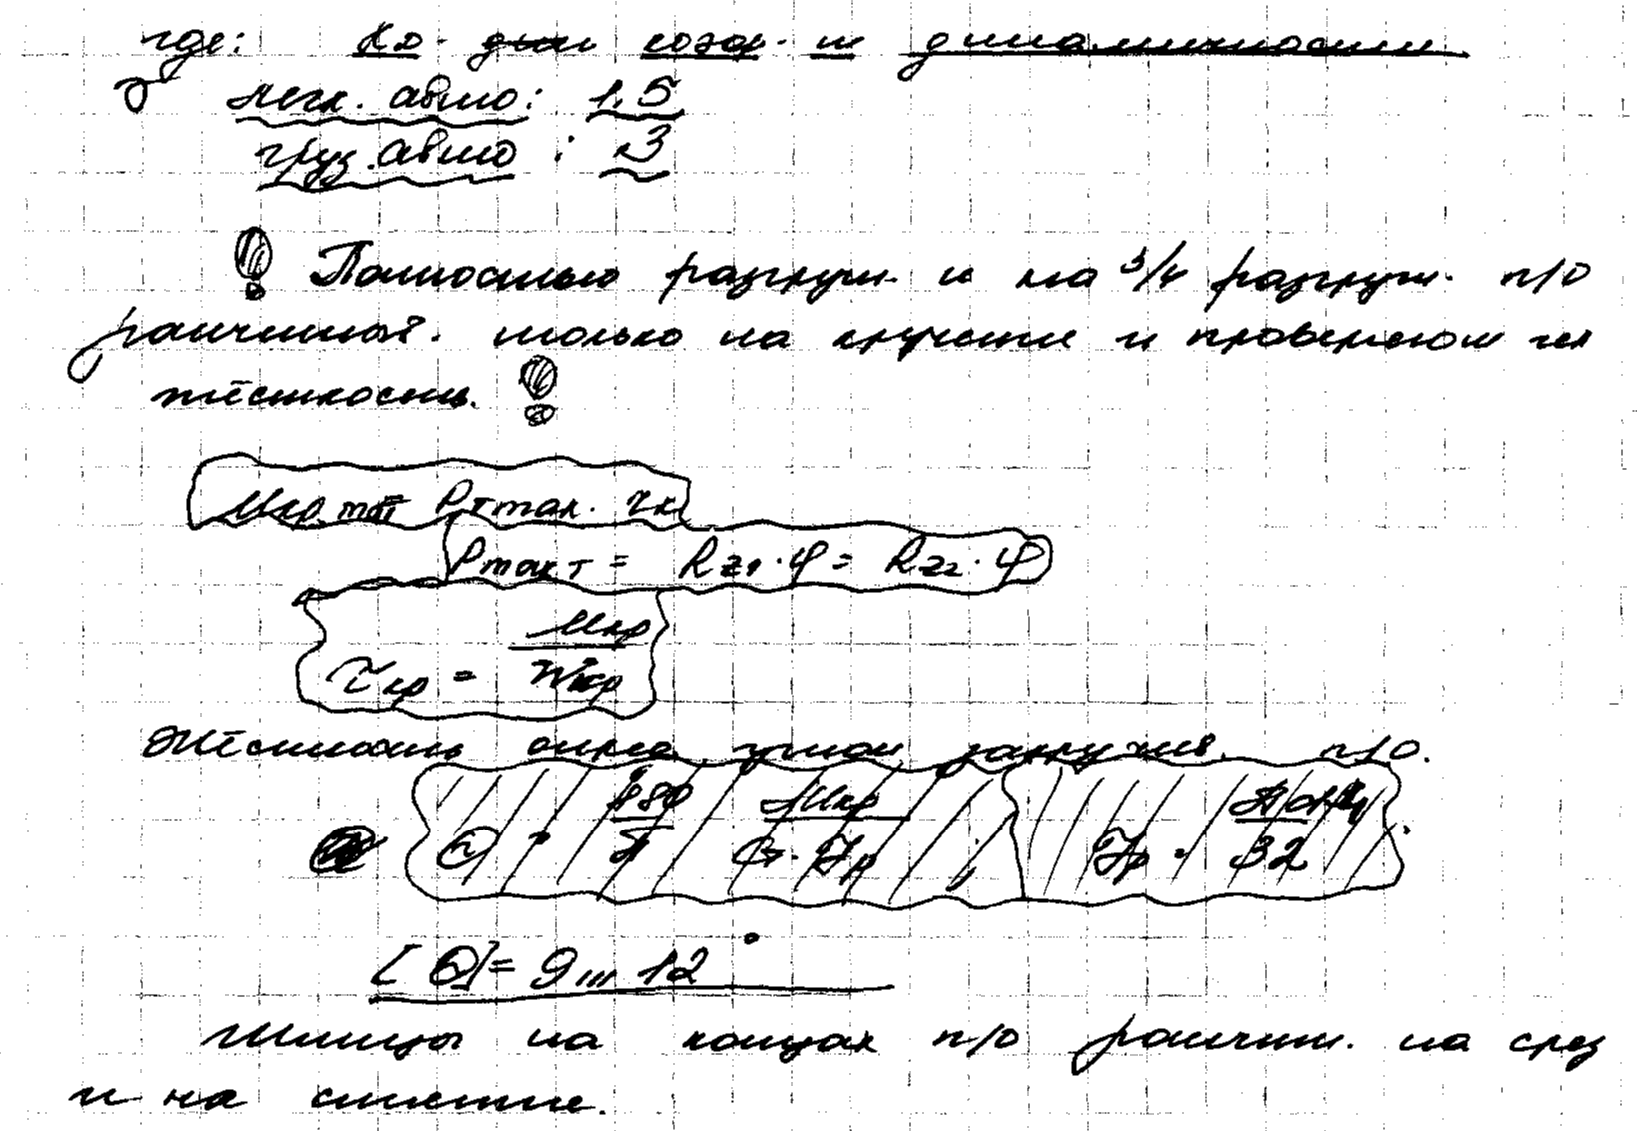 где: Кд - дин коэф-т динамичности
легк. авто: 1,5
груз. авто: 3
! Полностью разгруж. и на 3/4 разгруж. п/о
рассчитыв. только на кручение и проверяют на
жёсткость. !
Mкр max = Pт max · rк
Pmax т = Rz1 · φ = Rz2 · φ
τкр = Mкр / Wкр
Жёсткость оцен. углом закручив. п/о.
Θ = 180/π · Mкр / G · Jp ; Jp = πd⁴ / 32
[Θ] = 9...12°
Шлицы на концах п/о рассчит. на срез
и на смятие.